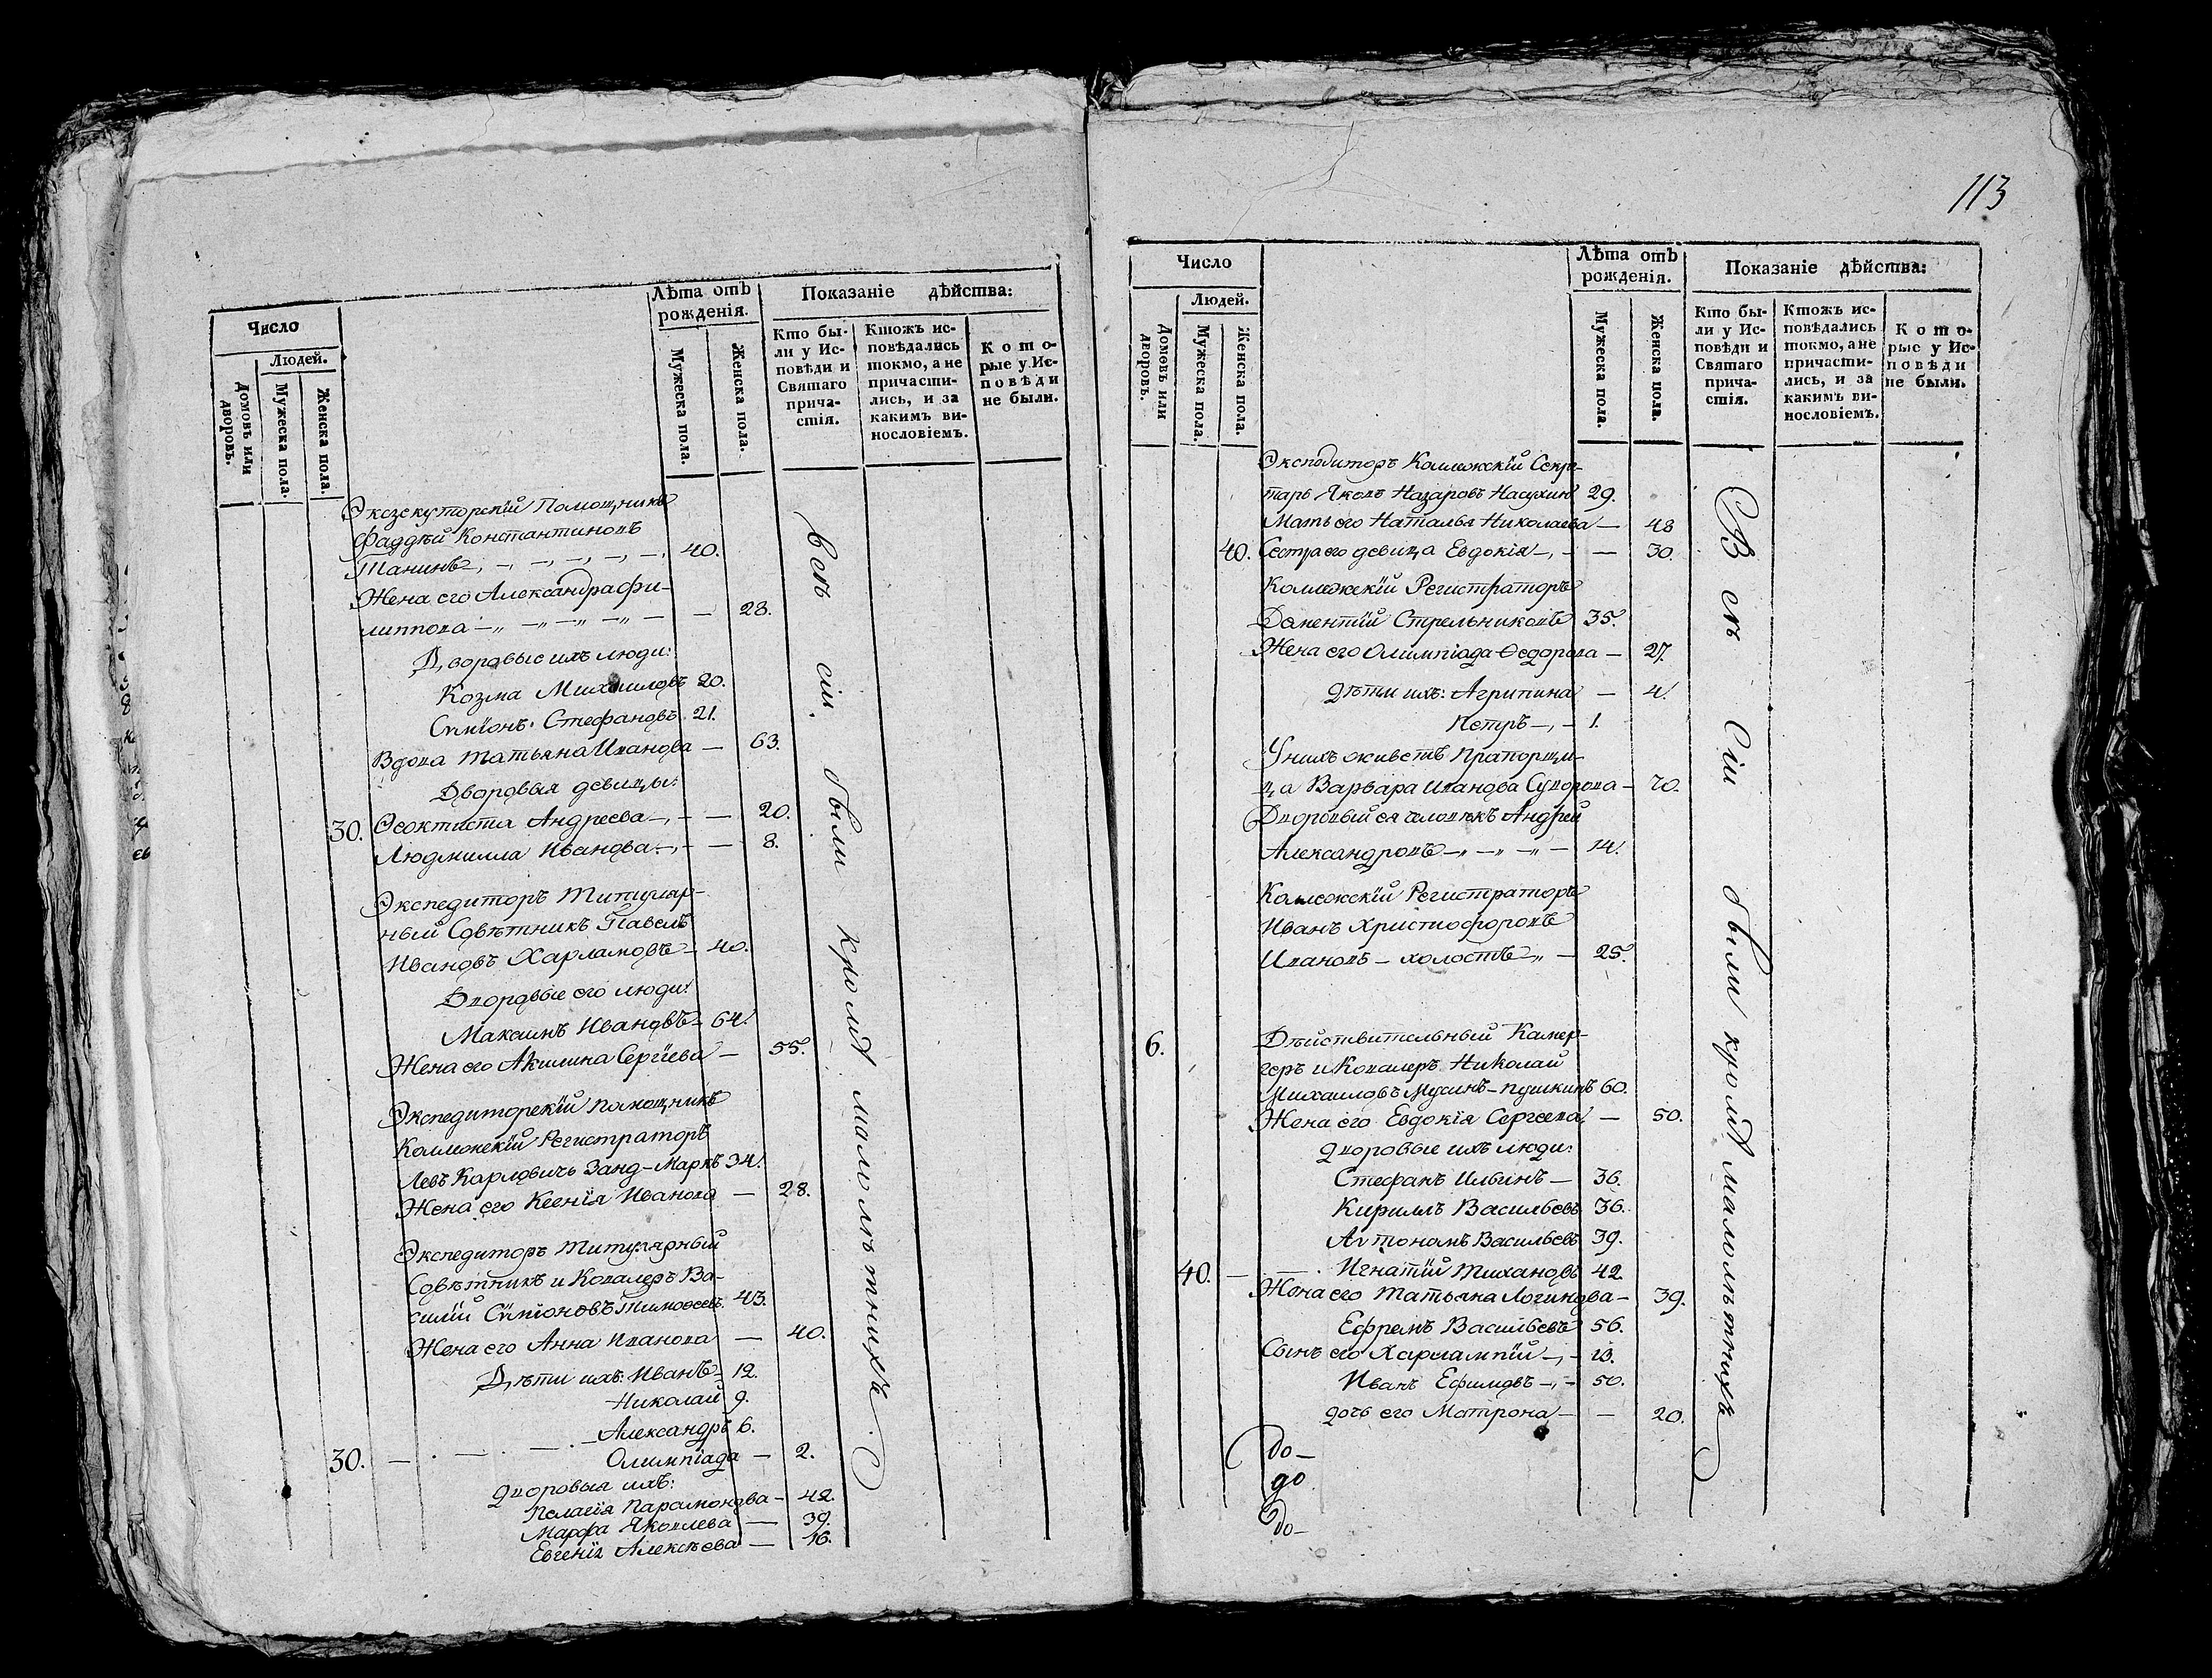 Число
Людей.
Домовъ или дворовъ.
Мужеска пола.
Женска пола.
Лѣта отъ рожденія.
Мужеска пола.
Женска пола.
Показаніе дѣйства:
Кто были у Исповѣди и Святаго причастія.
Ктожъ исповѣдались токмо, а не причастились, и за какимъ винословіемъ.
Которые у Исповѣди не были.
Экзекуторскій Помощникъ
Фаддѣй Константиновъ
Танинъ 40.
Жена его Александра Фи-
липпова — 28.
Дворовые ихъ люди:
Козма Михаиловъ 20.
Сѵмїонъ Стефановъ 21.
Вдова Татьяна Иванова — 63.
Дворовыя девицы:
30. Ѳеоктиста Андреева — 20.
Людмилла Иванова — 8.
Экспедиторъ Титуляр-
ный Совѣтникъ Павелъ
Ивановъ Харламовъ — 40.
Дворовые его люди:
Максимъ Ивановъ — 64.
Жена его Акилина Сергїева — 55.
Экспедиторскїй помощникъ
Коллежскїй Регистраторъ
Левъ Карловичь Занд-Маркъ 34.
Жена его Ксенїя Иванова — 28.
Экспедиторъ Титулярный
Совѣтникъ и Кавалеръ Ва-
силїй Сѵмїоновъ Тимоѳеевъ 43.
Жена его Анна Иванова — 40.
Дѣти ихъ: Иванъ — 12.
Николай 9.
Александръ 6.
30. Олимпїада — 2.
Дворовыя ихъ:
Пелагїя Парамонова — 42.
Марфа Яковлева — 39.
Евгенїя Алексѣева — 16.
всѣ сіи были кромѣ малолѣтнихъ.
113
Число
Людей.
Домовъ или дворовъ.
Мужеска пола.
Женска пола.
Лѣта отъ рожденія.
Мужеска пола.
Женска пола.
Показаніе дѣйства:
Кто были у Исповѣди и Святаго причастія.
Ктожъ исповѣдались токмо, а не причастились, и за какимъ винословіемъ.
Которые у Исповѣди не были.
Экспедиторъ Коллежскїй Секре-
тарь Яковъ Назаровъ 29.
Мать его Наталья Николаева — 48
40. Сестра его девица Евдокїя — 30.
Коллежскїй Регистраторъ
Стрельниковъ 35.
Жена его Олимпїада Ѳедорова — 27.
Дѣти ихъ: Агрипина — 4.
Петръ — 1.
У нихъ живетъ Прапорщи-
ца Варвара Иванова Суворова — 70.
Дворовый ея человѣкъ Андрей
Александровъ — 14.
Коллежскїй Регистраторъ
Иванъ Христофоровъ
Ивановъ — холостъ — 25.
6. Дѣйствительный Камер-
геръ и Кавалеръ Николай
Михаиловъ Мусинъ-Пушкинъ 60.
Жена его Евдокїя Сергеева — 50.
Дворовые ихъ люди:
Стефанъ Ильинъ — 36.
Кириллъ Васильевъ 36.
Автономъ Васильевъ 39.
40. Игнатїй Тихановъ 42.
Жена его Татьяна Логинова — 39.
Ефремъ Васильевъ 56.
Сынъ его Харлампїй — 13.
Иванъ Ефимовъ — 50.
Дочь его Матрона — 20.
До-
до
До-
Всѣ Сіи были кромѣ малолѣтнихъ